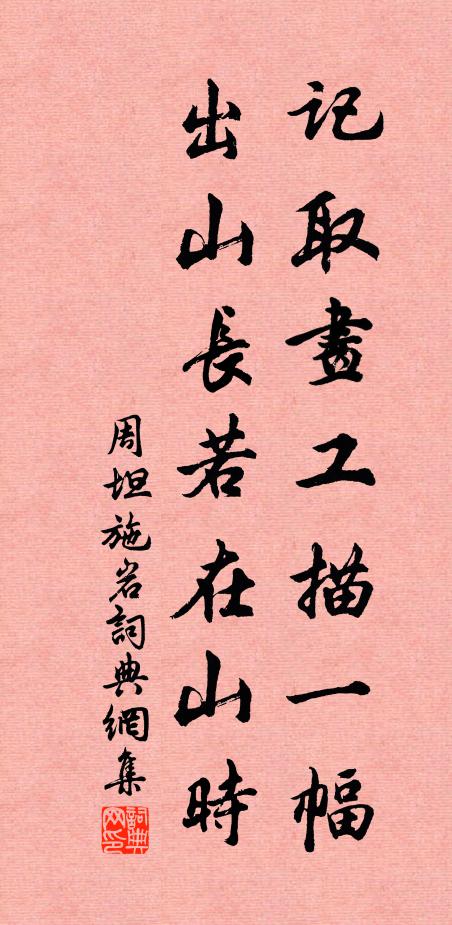 記取畫工描一幅
出山長若在山時
周坦施岩詞典網集
詞典
网印